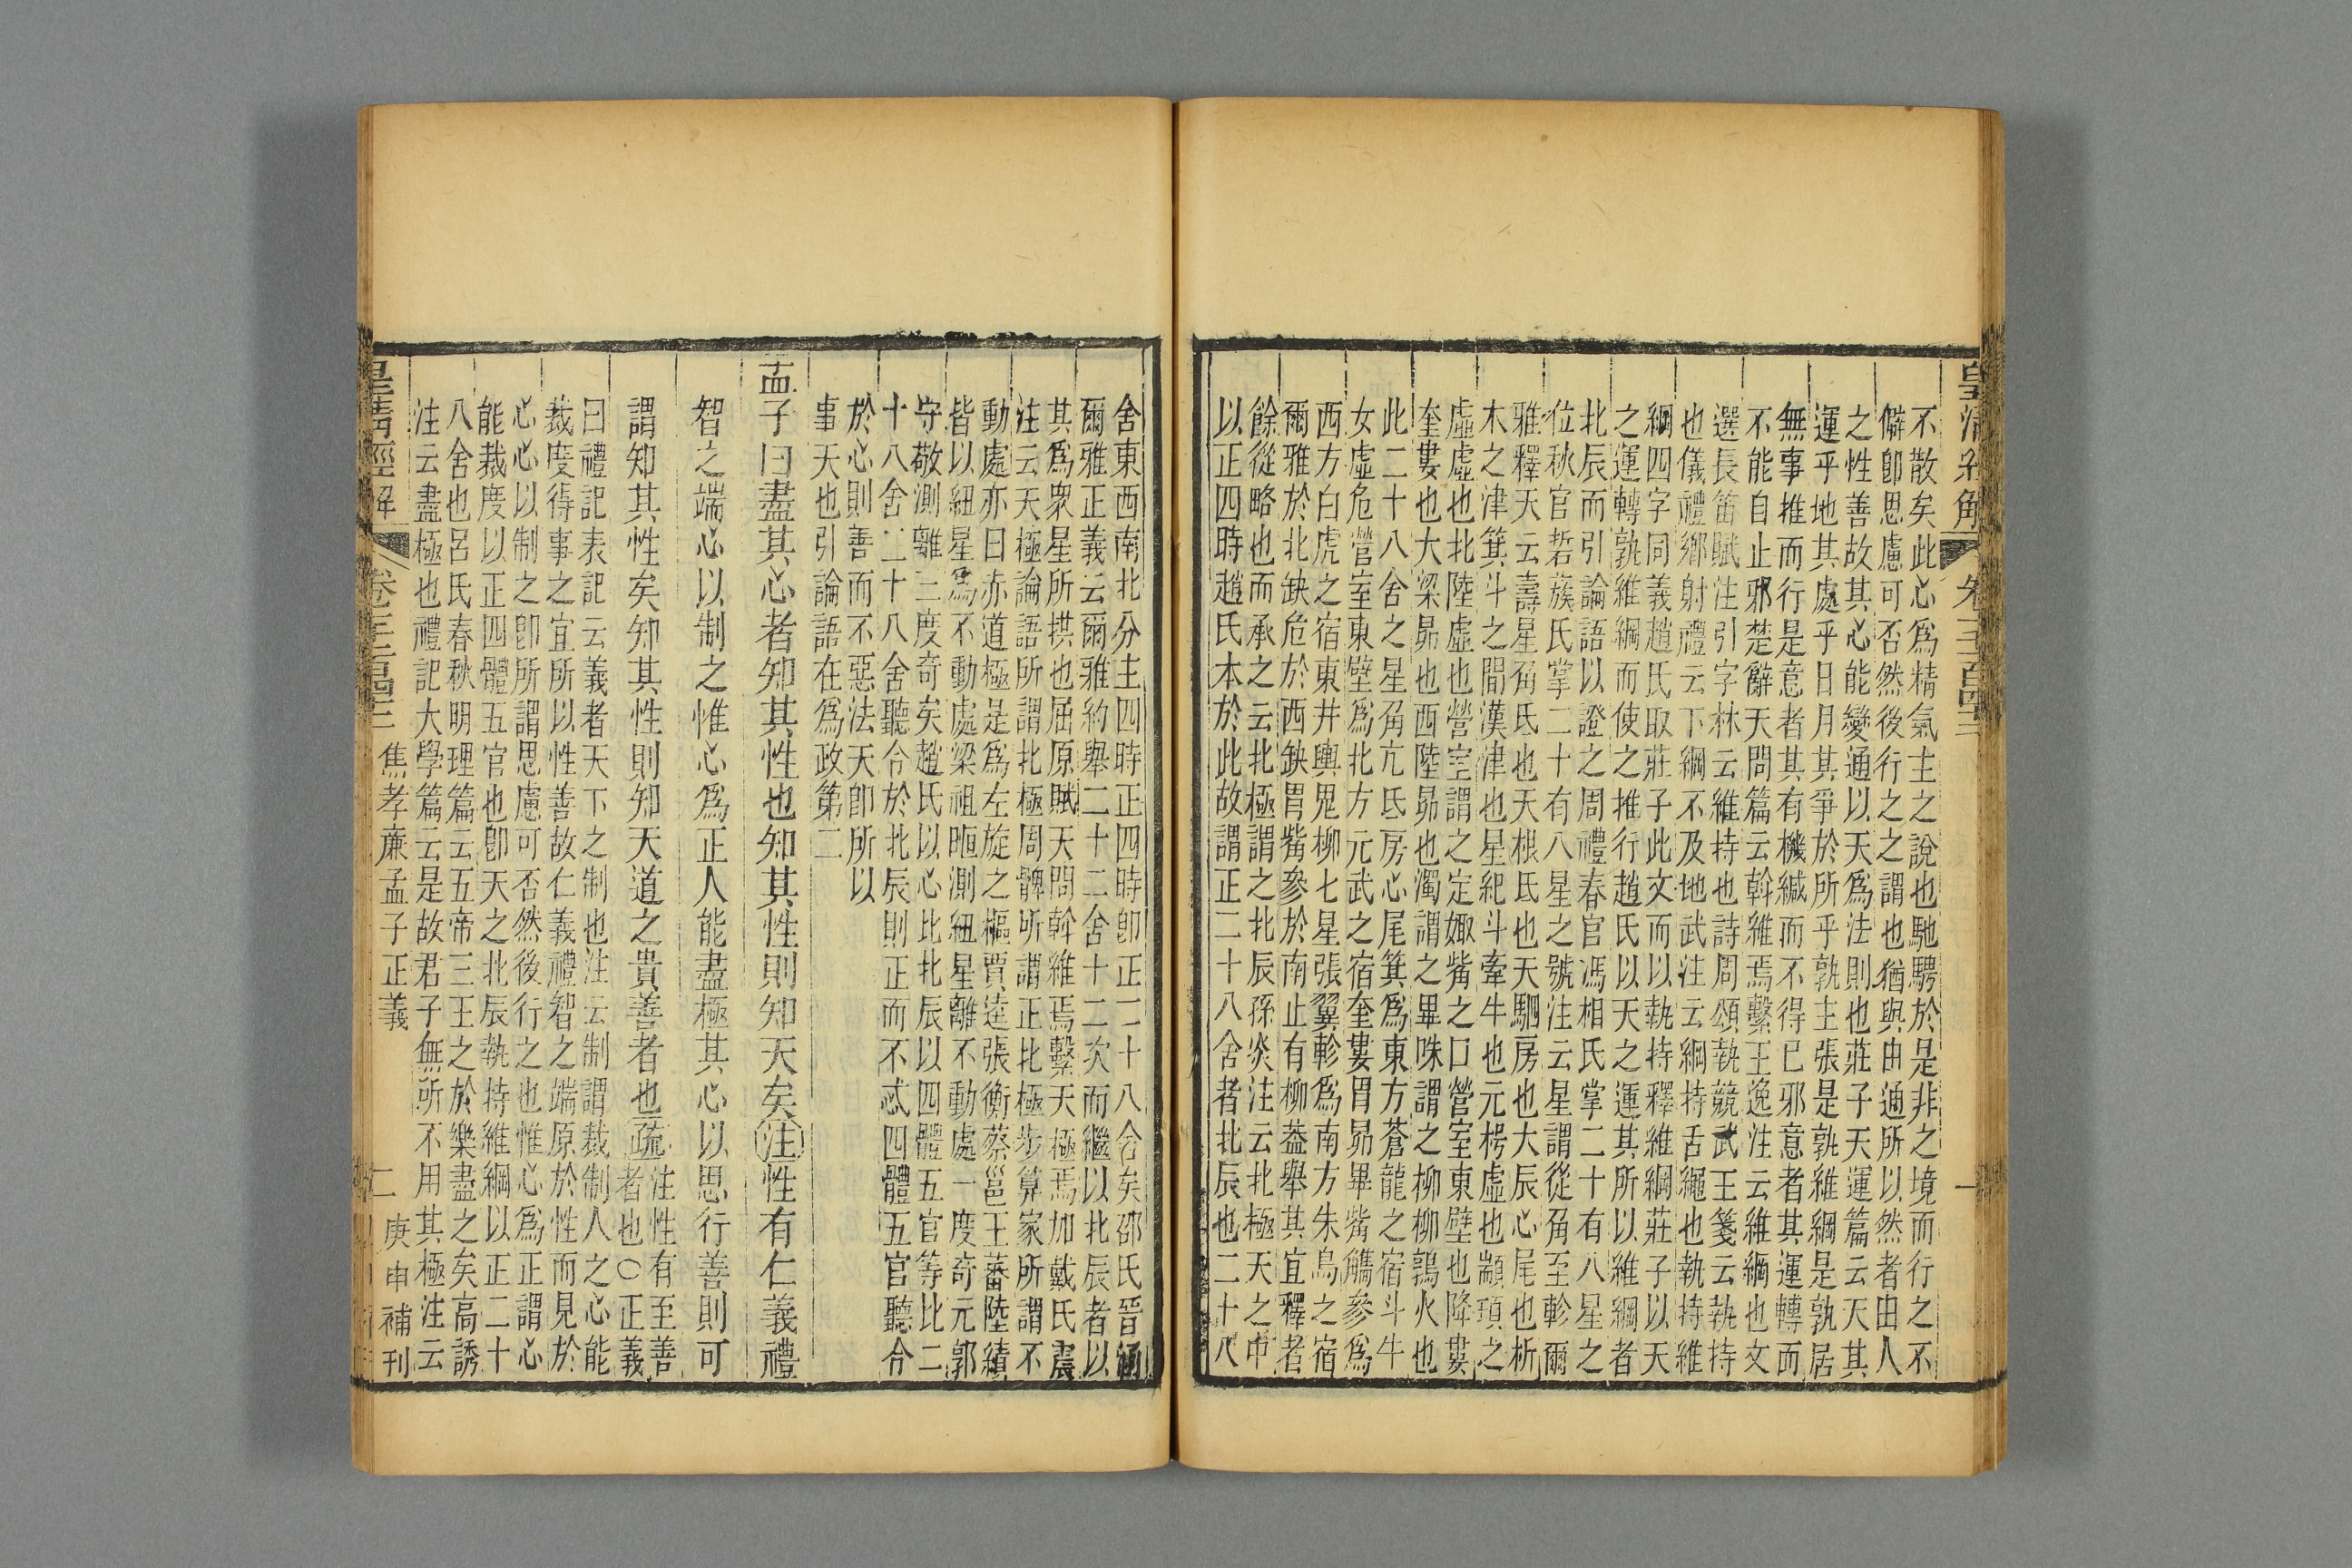 皇清經解
卷一千一百四十三
一
不散矣此心爲精氣主之說也馳騁於是非之境而行之不
僻卽思慮可否然後行之之謂也猶與由通所以然者由人
之性善故其心能變通以天爲法則也莊子天運篇云天其
運乎地其處乎日月其爭於所乎孰主張是孰維綱是孰居
無事推而行是意者其有機緘而不得已邪意者其運轉而
不能自止邪楚辭天問篇云斡維焉繫王逸注云維綱也文
選長笛賦注引字林云維持也詩周頌執競武王箋云執持
也儀禮鄉射禮云下綱不及地武注云綱持舌繩也執持維
綱四字同義趙氏取莊子此文而以執持釋維綱莊子以天
之運轉孰維綱而使之推行趙氏以天之運其所以維綱者
北辰而引論語以證之周禮春官馮相氏掌二十有八星之
位秋官硩蔟氏掌二十有八星之號注云星謂從角至軫爾
雅釋天云壽星角氐也天根氐也天駟房也大辰心尾也析
木之津箕斗之間漢津也星紀斗牽牛也元枵虛也顓頊之
虛虛也北陸虛也營室謂之定娵觜之口營室東壁也降婁
奎婁也大梁昴也西陸昴也濁謂之畢咮謂之柳柳鶉火也
此二十八舍之星角亢氐房心尾箕爲東方蒼龍之宿斗牛
女虛危營室東壁爲北方元武之宿奎婁胃昴畢觜觿參爲
西方白虎之宿東井輿鬼柳七星張翼軫爲南方朱鳥之宿
爾雅於北缺危於西缺胃觜參於南止有柳葢舉其宜釋者
餘從略也而承之云北極謂之北辰孫炎注云北極天之中
以正四時趙氏本於此故謂正二十八舍者北辰也二十八
舍東西南北分主四時正四時卽正二十八舍矣邵氏晉涵
爾雅正義云爾雅約舉二十二舍十二次而繼以北辰者以
其爲衆星所拱也屈原賦天問斡維焉繫天極焉加戴氏震
注云天極論語所謂北極周髀所謂正北極步算家所謂不
動處亦曰赤道極是爲左旋之樞賈逵張衡蔡邕王蕃陸績
皆以紐星爲不動處梁祖暅測紐星離不動處一度奇元郭
守敬測離三度奇矣趙氏以心比北辰以四體五官等比二
十八舍二十八舍聽令於北辰則正而不忒四體五官聽令
於心則善而不惡法天卽所以
事天也引論語在爲政第二
孟子曰盡其心者知其性也知其性則知天矣注性有仁義禮
智之端心以制之惟心爲正人能盡極其心以思行善則可
謂知其性矣知其性則知天道之貴善者也疏注性有至善
者也○正義
曰禮記表記云義者天下之制也注云制謂裁制人之心能
裁度得事之宜所以性善故仁義禮智之端原於性而見於
心心以制之卽所謂思慮可否然後行之也惟心爲正謂心
能裁度以正四體五官也卽天之北辰執持維綱以正二十
八舍也呂氏春秋明理篇云五帝三王之於樂盡之矣高誘
注云盡極也禮記大學篇云是故君子無所不用其極注云
皇清經解
卷一千一百四十三
焦孝廉孟子正義
二
庚申補刊